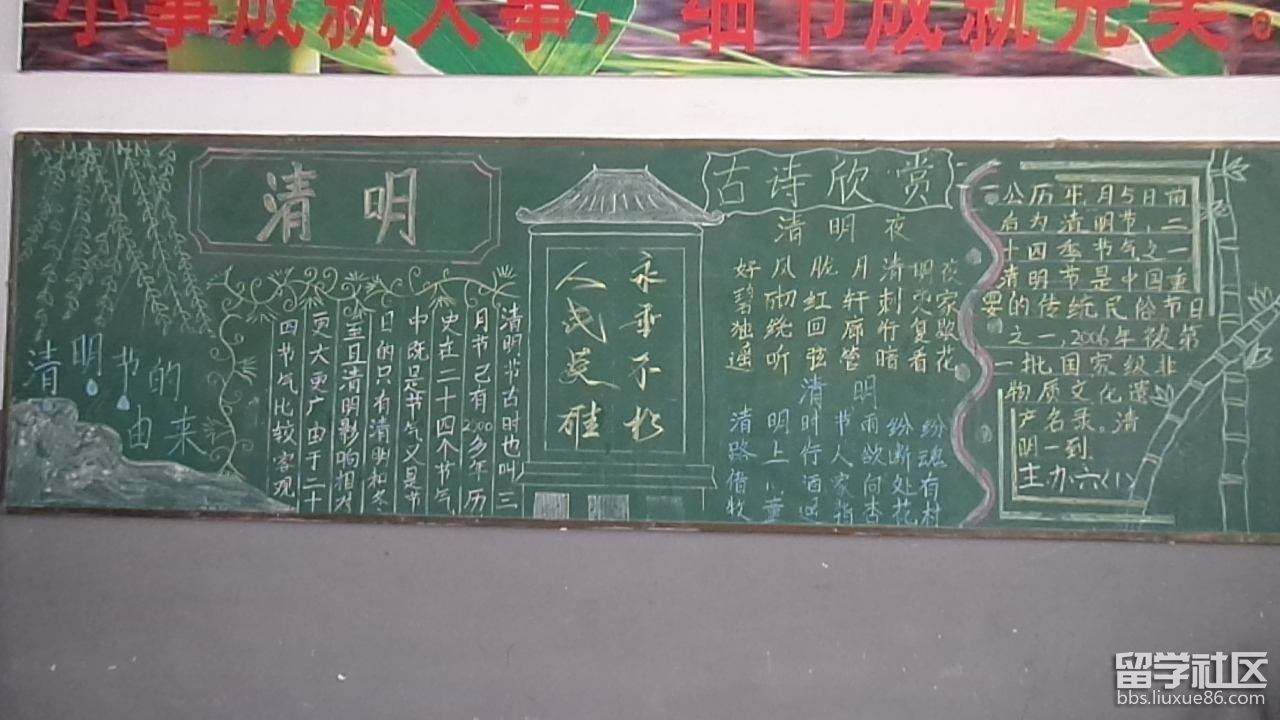 小事成就大事，细节成就完美。
清明
清明节的
由来
清明节古时也叫三
月节已有2000多年历
史在二十四个节气
中既是节气又是节
日的只有清明和冬
至且清明影响相对
更大更广由于二十
四节气比较客观
永垂不朽
人民英雄
古诗欣赏
清明夜
好风胧月清明夜
碧砌红轩刺史家
独绕回廊行复歇
遥听弦管暗看花
清明
清明时节雨纷纷
路上行人欲断魂
借问酒家何处有
牧童遥指杏花村
公历年月5日前
后为清明节，二
十四季节气之一
清明节是中国重
要的传统民俗节日
之一，2006年被第
一批国家级非
物质文化遗
产名录。清
明一到
主办六(1)
留学社区
bbs.liuxue86.com